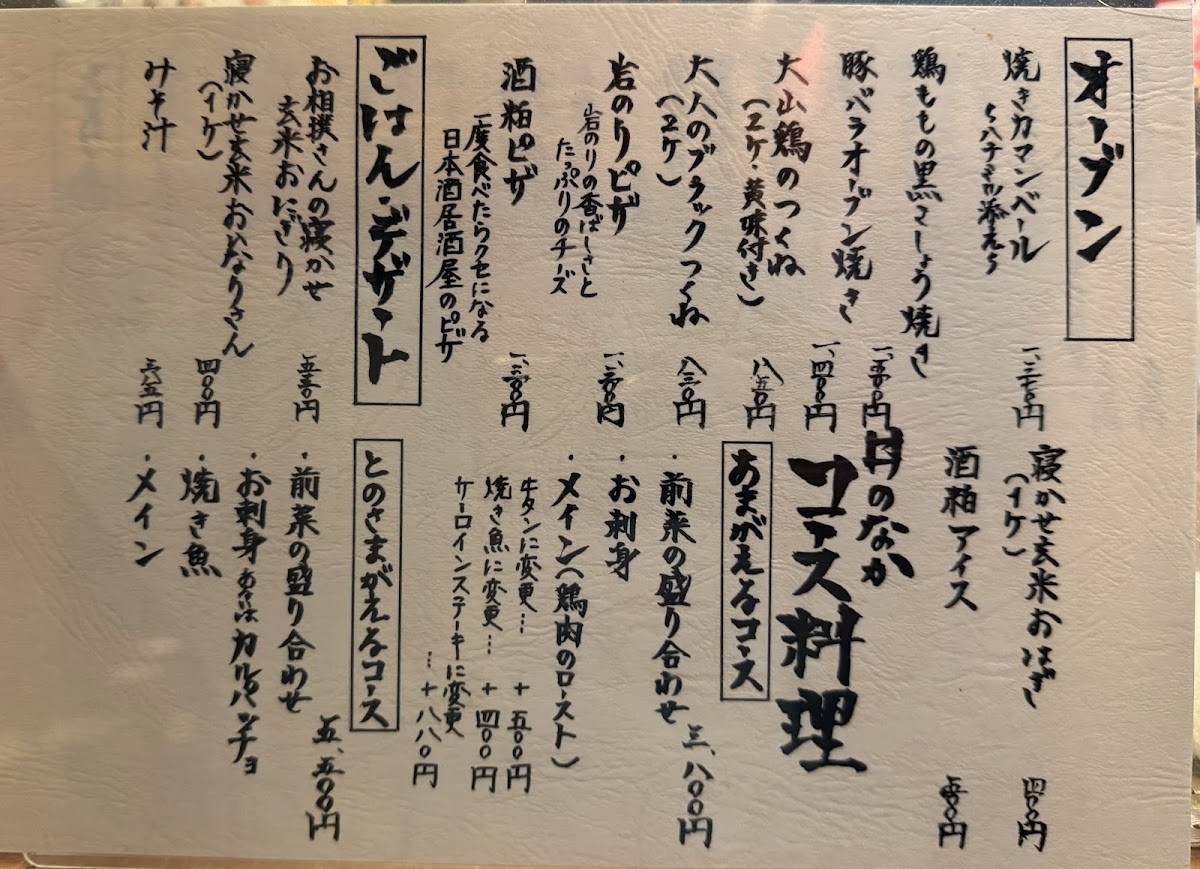 オーブン
焼きカマンベール
〜ハチミツ添え〜
鶏ももの黒こしょう焼き
豚バラオーブン焼き
一、四〇〇円
大山鶏のつくね
(2ケ・黄味付き)
八五〇円
大人のブラックつくね
(2ケ)
八三〇円
岩のりピザ
岩のりの香ばしさと
たっぷりのチーズ
酒粕ピザ
一度食べたらクセになる
日本酒居酒屋のピザ
ごはん・デザート
お相撲さんの寝かせ
玄米おにぎり
寝かせ玄米おいなりさん
(1ケ)
四〇〇円
みそ汁
寝かせ玄米おはぎ
(1ケ)
四〇〇円
酒粕アイス
井のなか
コース料理
あまがえるコース
三、八〇〇円
・前菜の盛り合わせ
・お刺身
・メイン(鶏肉のロースト)
牛タンに変更… +五〇〇円
焼き魚に変更… +四〇〇円
サーロインステーキに変更
… +八八〇円
とのさまがえるコース
五、五〇〇円
・前菜の盛り合わせ
・お刺身あるいはカルパッチョ
・焼き魚
・メイン